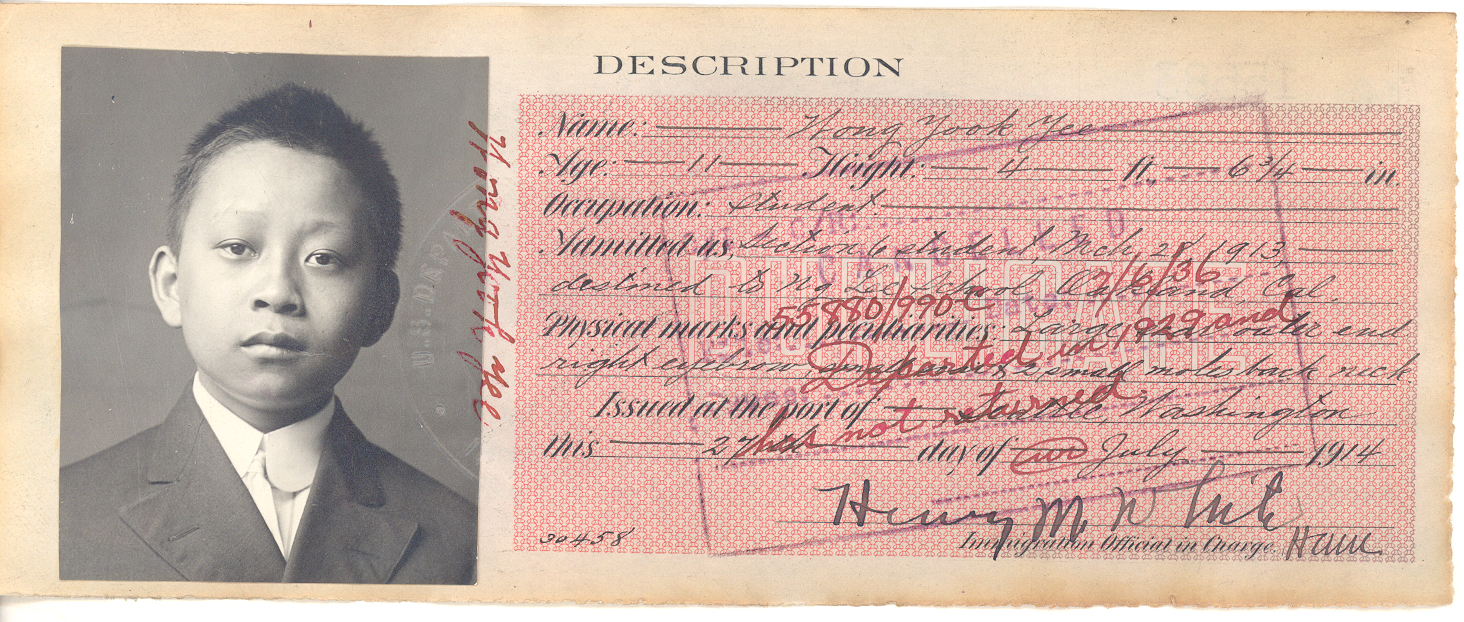 DESCRIPTION
Name: Wong Yook Yee
Age: 11 Height: 4 ft. 6 3/4 in.
Occupation: Student
Admitted as Section 6 student, Mch, 28, 1913
destined to Ng Lee School, Oakland, Cal.
2/6/36
55880/990-C
Physical marks and peculiarities: Large outer end
right eyebrow, 2 small moles back neck
Departed in 1929 and
has not returned
Issued at the port of Seattle, Washington
this 27th day of July 1914
Henry M. White
Immigration Official in Charge.
30458
Wong Yook Yee
CANCELLED
DUPLICATE